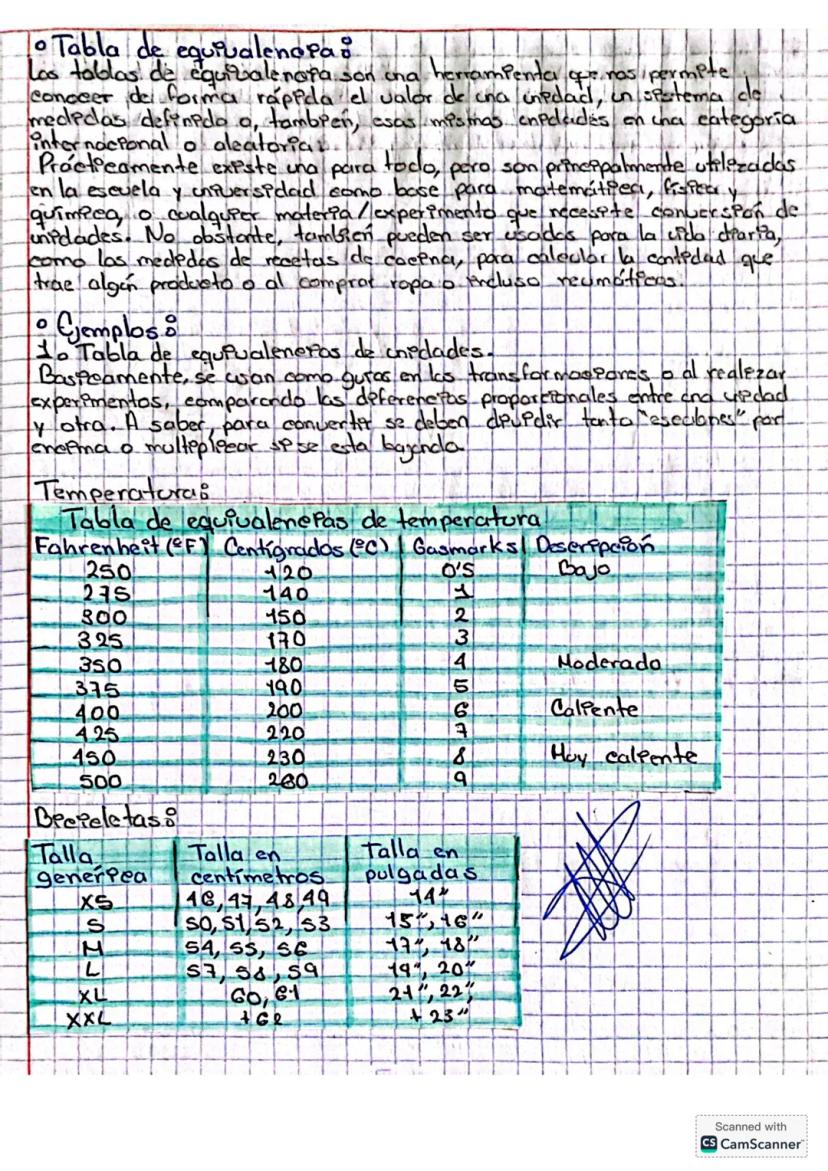 ° Tabla de equivalencia:
Las tablas de equivalencia son una herramienta que nos permite
conocer de forma rápida el valor de una unidad, un sistema de
medidas definido o, también, esas mismas unidades en una categoría
internacional o aleatoria.
Prácticamente existe una para todo, pero son principalmente utilizadas
en la escuela y universidad como base para matemática, física y
química, o cualquier materia/experimento que necesite conversión de
unidades. No obstante, también pueden ser usadas para la vida diaria,
como las medidas de recetas de cocina, para calcular la cantidad que
trae algún producto o al comprar ropa o incluso neumáticos.
° Ejemplos:
1. Tabla de equivalencias de unidades.
Basicamente, se usan como guías en las transformaciones o al realizar
experimentos, comparando las diferencias proporcionales entre una unidad
y otra. A saber, para convertir se deben dividir tanto "escalones" por
encima o multiplicar si se esta bajando.
Temperatura:
Tabla de equivalencias de temperatura
Fahrenheit (ºF) Centígrados (ºC) Gasmarks Descripción
250 120 0'5 Bajo
275 140 1
300 150 2
325 170 3
350 180 4 Moderado
375 190 5
400 200 6 Caliente
425 220 7
450 230 8 Muy caliente
500 260 9
Bicicletas:
Talla Talla en Talla en
generica centímetros pulgadas
XS 46, 47, 48, 49 14"
S 50, 51, 52, 53 15", 16"
M 54, 55, 56 17", 18"
L 57, 58, 59 19", 20"
XL 60, 61 21", 22"
XXL +62 + 23"
Scanned with
CS CamScanner